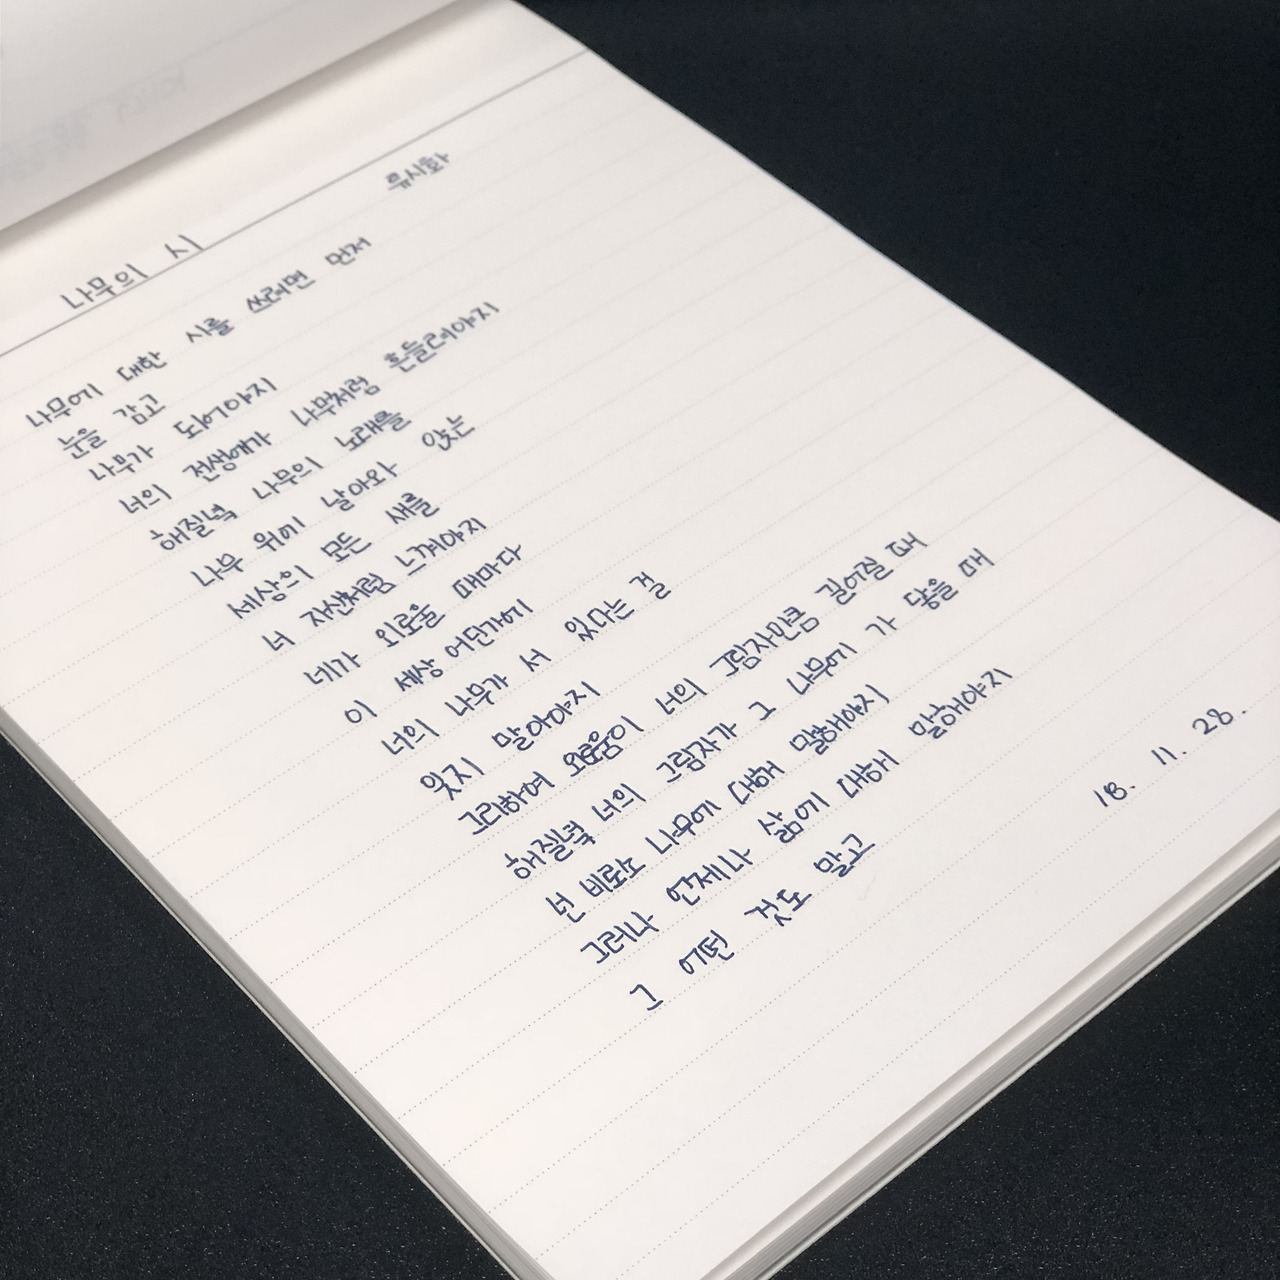 나무의 시
류시화
나무에 대한 시를 쓰려면 먼저
눈을 감고
나무가 되어야지
너의 전생애가 나무처럼 흔들려야지
해질녘 나무의 노래를
나무 위에 날아와 앉는
세상의 모든 새를
너 자신처럼 느껴야지
네가 외로울 때마다
이 세상 어딘가에
너의 나무가 서 있다는 걸
잊지 말아야지
그리하여 외로움이 너의 그림자만큼 길어질 때
해질녘 너의 그림자가 그 나무에 가 닿을 때
넌 비로소 나무에 대해 말해야지
그러나 언제나 삶에 대해 말해야지
그 어떤 것도 말고
18. 11. 28.